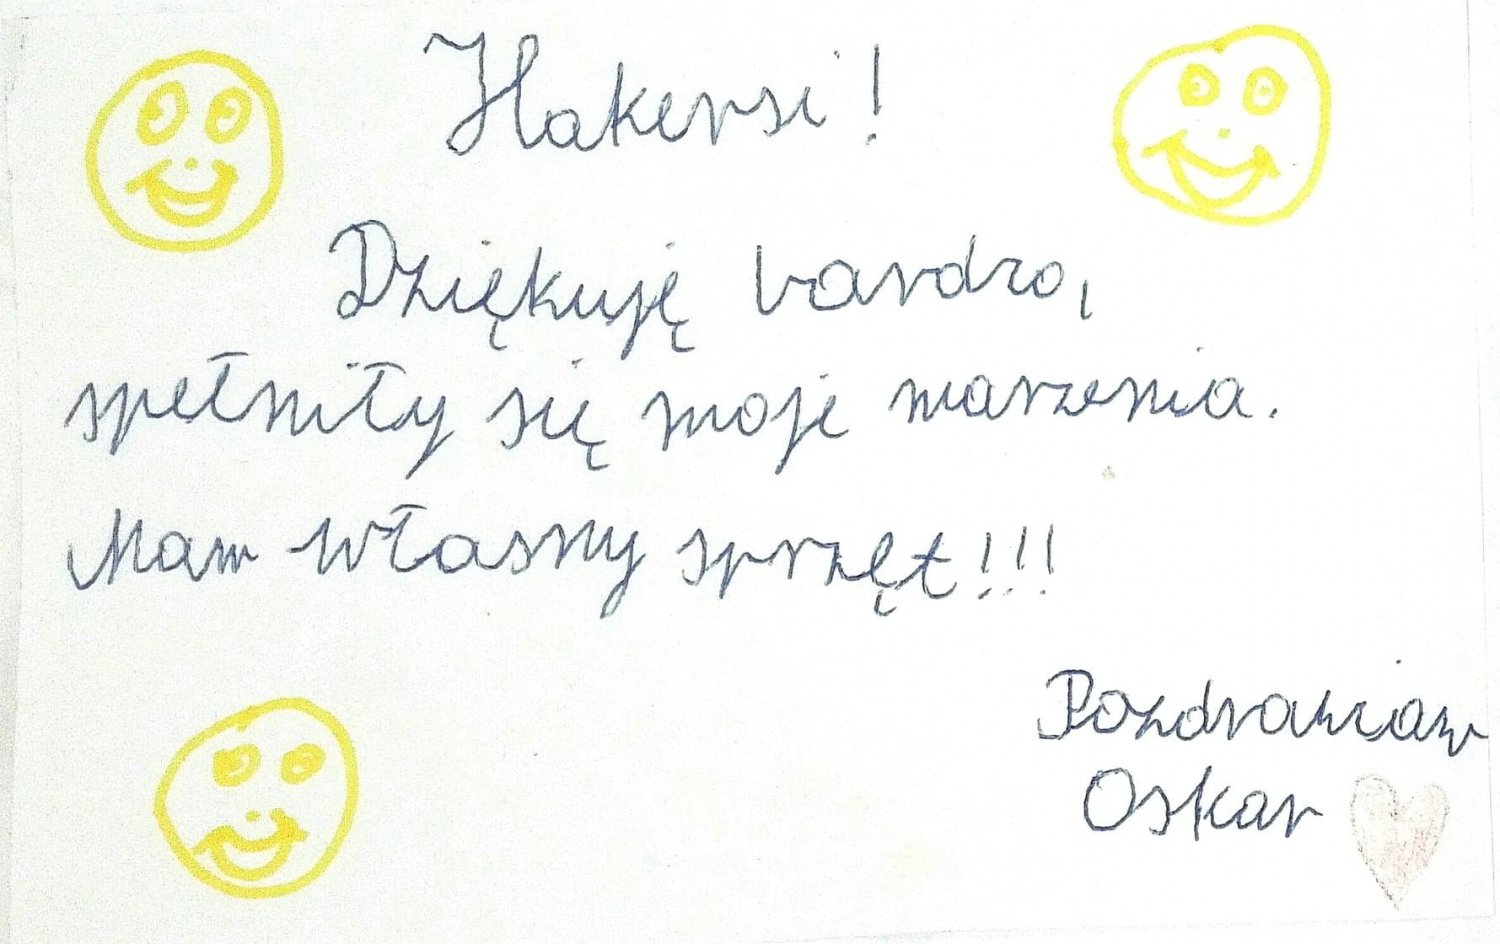 Hakersi!
Dziękuję bardzo,
spełniły się moje marzenia.
Mam własny sprzęt!!!
Pozdrawiam
Oskar